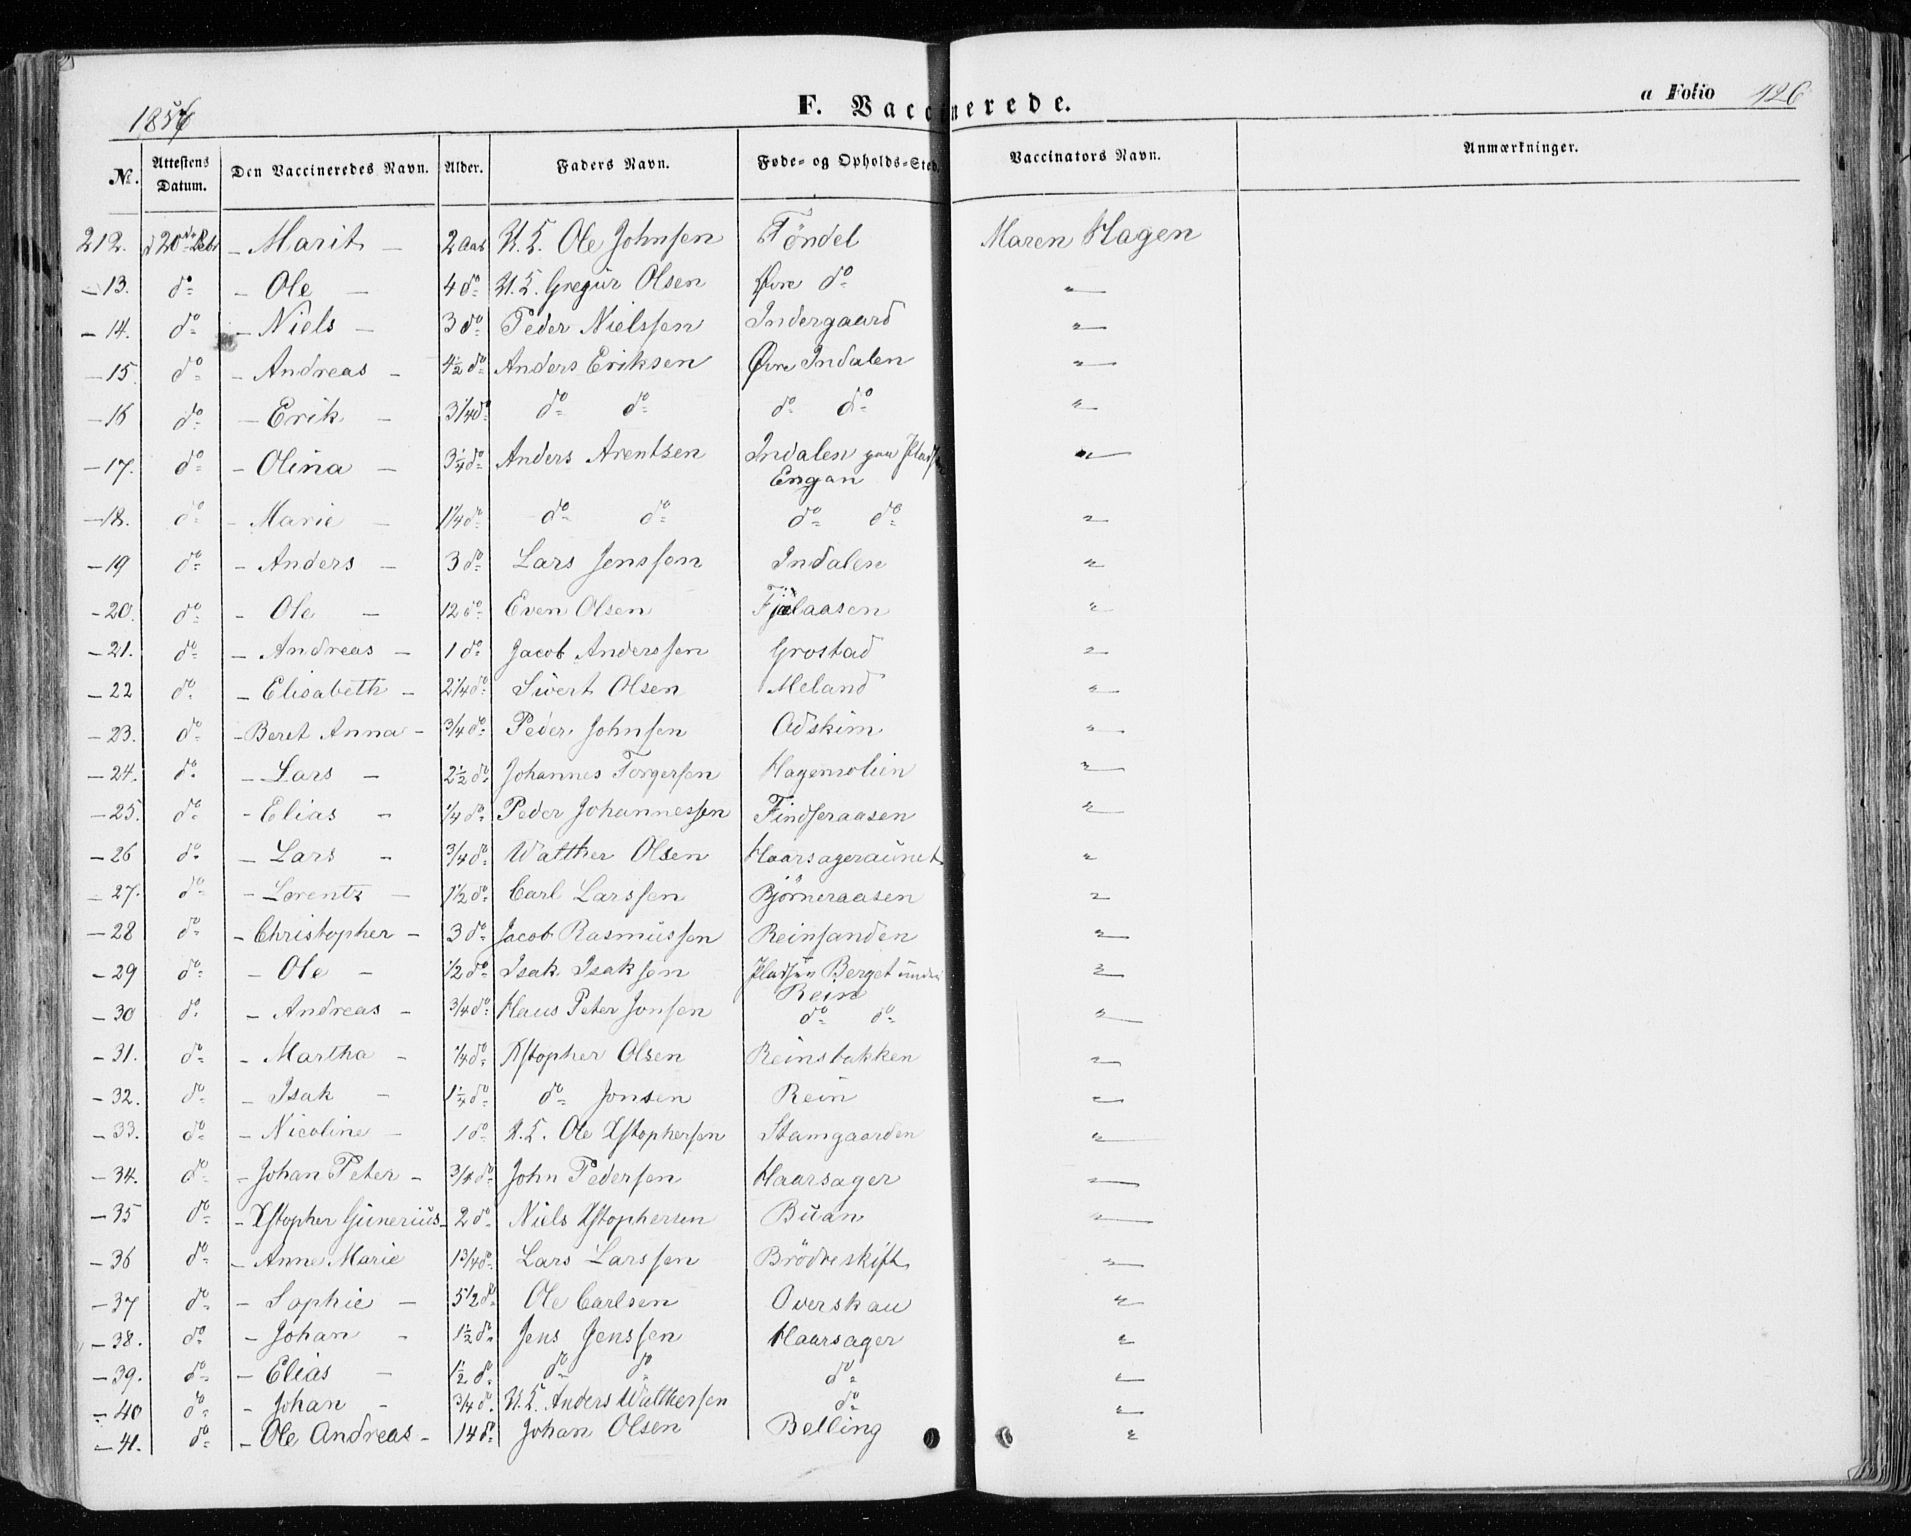 1856
F. Vaccinerede.
a Folio 426
No. Attestens Datum. Den Vaccineredes Navn. Alder. Faders Navn. Føde- og Opholds-Sted. Vaccinators Navn. Anmærkninger.
212. d 20de Febr - Marit - 2 Aar U. E. Ole Johnsen Töndel Maren Hagen
-13. do - Ole - 4 do U. E. Gregur Olsen Øvre do "
-14. do - Niels - 3 do Peder Nielssen Indergaard "
-15. do - Andreas - 4½ do Anders Eriksen Øvre Indalen "
-16 do - Erik - 3¼ do do do do do "
-17. do - Olina - 3¼ do Anders Arentsen Indalen paa Pladsen "
Engan
-18. do - Marie - 1¼ do do do do do "
-19 do - Anders - 3 do Lars Jenssen Indalen "
-20. do - Ole - 12 do Even Olsen Fjelaasen "
-21. do - Andreas - 1 do Jacob Anderssen Grostad "
-22 do - Elisabeth - 2¼ do Sivert Olsen Meland "
-23. do - Beret Anna - ¾ do Peder Johnsen Odskim "
-24. do - Lars - 2½ do Johannes Torgersen Hagensolien "
-25. do - Elias - ¼ do Peder Johannessen Findseraasen "
-26 do - Lars - ¾ do Walther Olsen Haarsageraunet "
-27. do - Lorentz - 1½ do Carl Larssen Bjørneraasen "
-28 do - Christopher - 3 do Jacob Rasmussen Reinsanden "
-29 do - Ole - ½ do Isak Isaksen Pladsen Berget under "
Rein
-30 do - Andreas - ¾ do Hans Peter Jonsen do do "
-31. do - Martha - ¼ do Xstopher Olsen Reinsbakken "
-32. do - Isak - 1¼ do do Jonsen Rein "
-33. do - Nicoline - 1 do U. E. Ole Xstophersen Stamgaarden "
-34. do - Johan Peter - ¾ do John Pedersen Haarsager "
-35 do - Xstopher Gunerius - 2 do Niels Xstophersen Buan "
-36 do - Anne Marie 1¾ do Lars Larssen Brödreskift "
-37 do - Sophie - 5½ do Ole Carlsen Overskau "
-38. do - Johan - 1½ do Jens Jenssen Haarsager "
-39. do - Elias - 1½ do do do do "
-40 do - Johan - ¾ do U. E. Anders Walthersen do "
-41. do - Ole Andreas - 14 do Johan Olsen Belling "